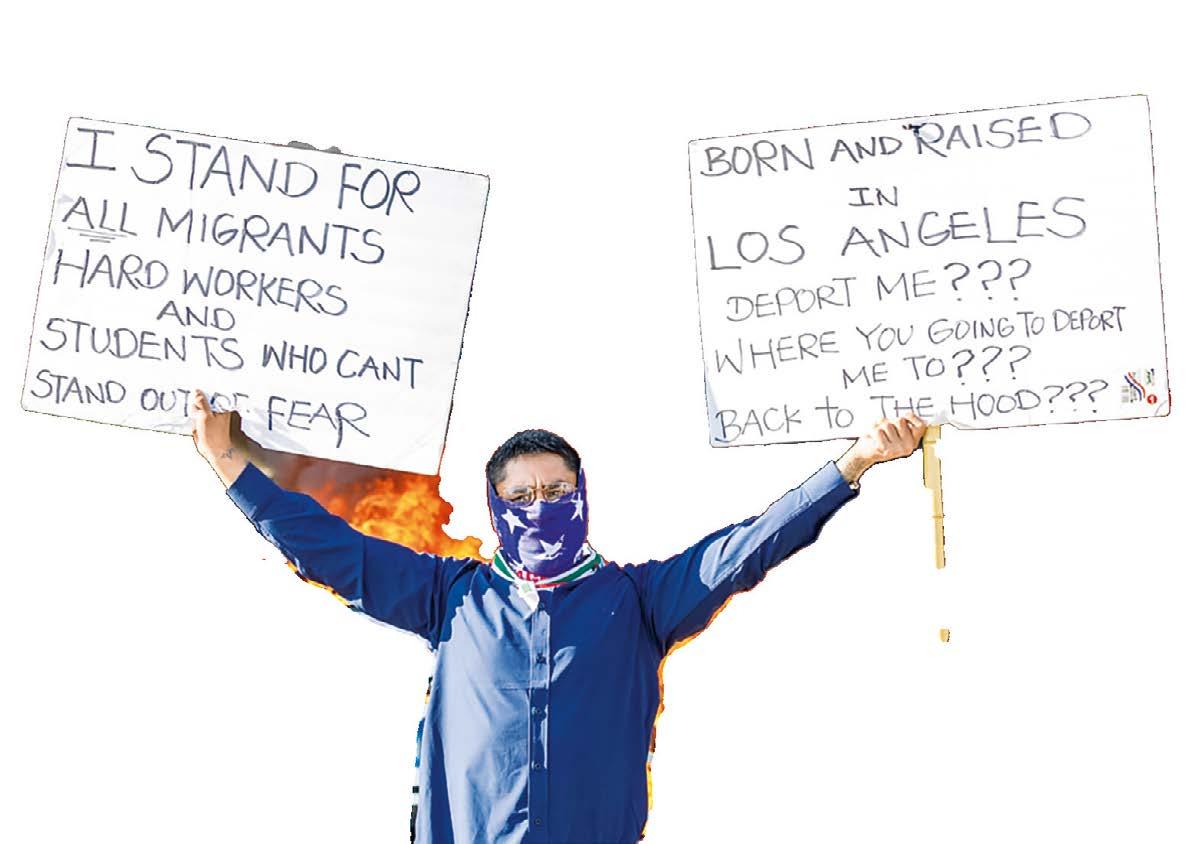 I STAND FOR
ALL MIGRANTS
HARD WORKERS
AND
STUDENTS WHO CANT
STAND OUT OF FEAR
BORN AND RAISED
IN
LOS ANGELES
DEPORT ME???
WHERE YOU GOING TO DEPORT
ME TO???
BACK to THE HOOD???